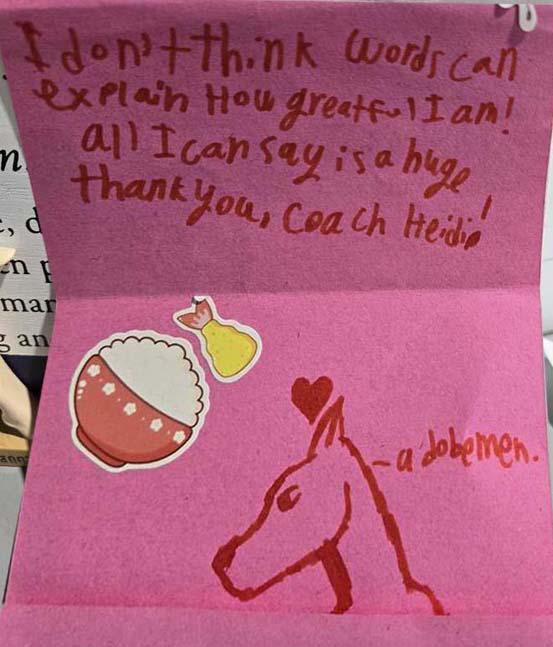 I don't think words can
explain How greatful I am!
all I can say is a huge
thank you, Coach Heidi!
- a dobemen.